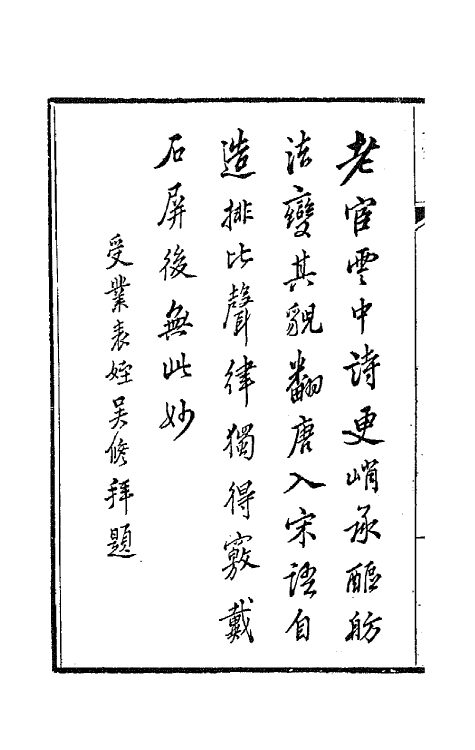 老宦雲中詩更峭承醧舫
法變其貌翻唐入宋語自
造排比聲律獨得竅戴
石屏後無此妙
受業表姪吴修拜題